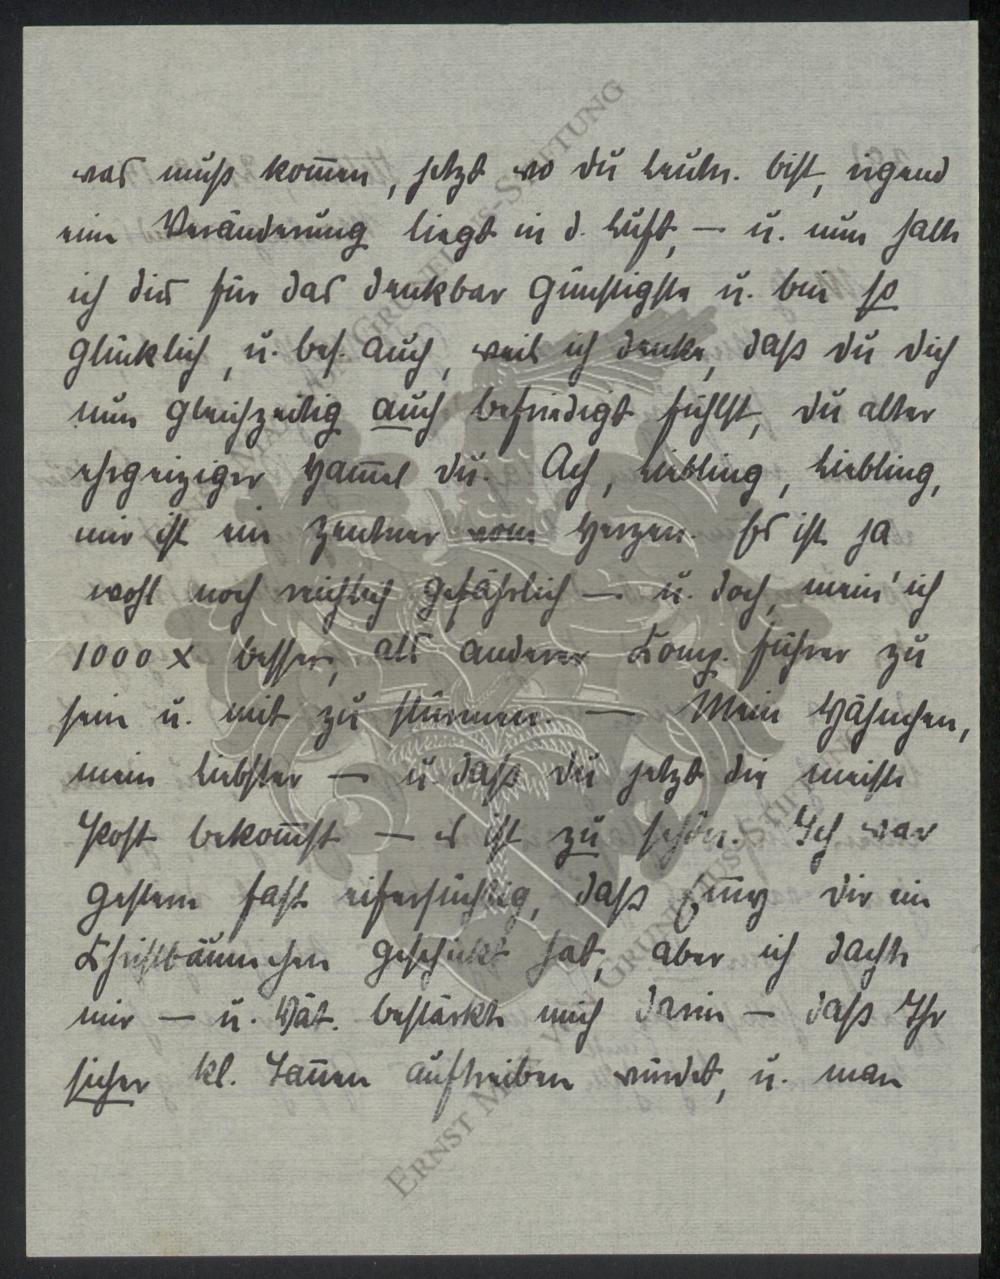 was muß kom̅en, jetzt wo du Leutn. bist, irgend
eine Veränderung liegt in d. Luft, — u. nun halte
ich dies für das denkbar Günstigste u. bin so
glücklich, u. bes. auch, weil ich denke, daß du dich
nun gleichzeitig auch befriedigt fühlst, du alter
ehrgeiziger Ham̅el du. Ach, Liebling, Liebling,
mir ist ein Zentner vom Herzen. Es ist ja
wohl noch reichlich gefährlich — u. doch, mein' ich
1000 x besser, als anderer Komp. führer zu
sein u. mit zu stürmen. — Mein Hähnchen,
mein Liebster — u. daß du jetzt die meiste
Post bekom̅st — es ist zu schön. Ich war
gestern fast eifersüchtig, daß dir ein
Christbäumchen geschickt hat, aber ich dachte
mir — u. Vät. bestärkte mich darin — daß Ihr
sicher kl. Tan̅en auftreiben würdet, u. man
ERNST MAX VON GRUNELIUS-STIFTUNG